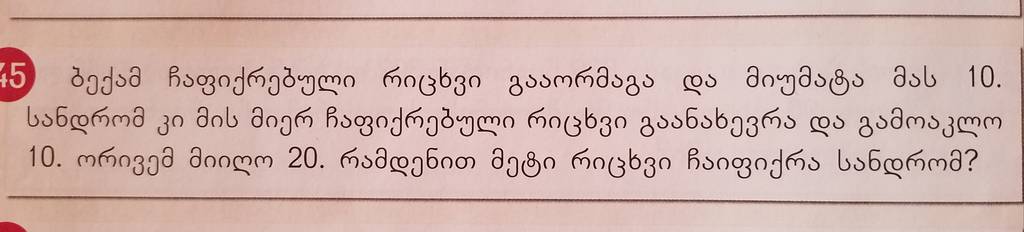 45 ბექამ ჩაფიქრებული რიცხვი გააორმაგა და მიუმატა მას 10.
სანდრომ კი მის მიერ ჩაფიქრებული რიცხვი გაანახევრა და გამოაკლო
10. ორივემ მიიღო 20. რამდენით მეტი რიცხვი ჩაიფიქრა სანდრომ?